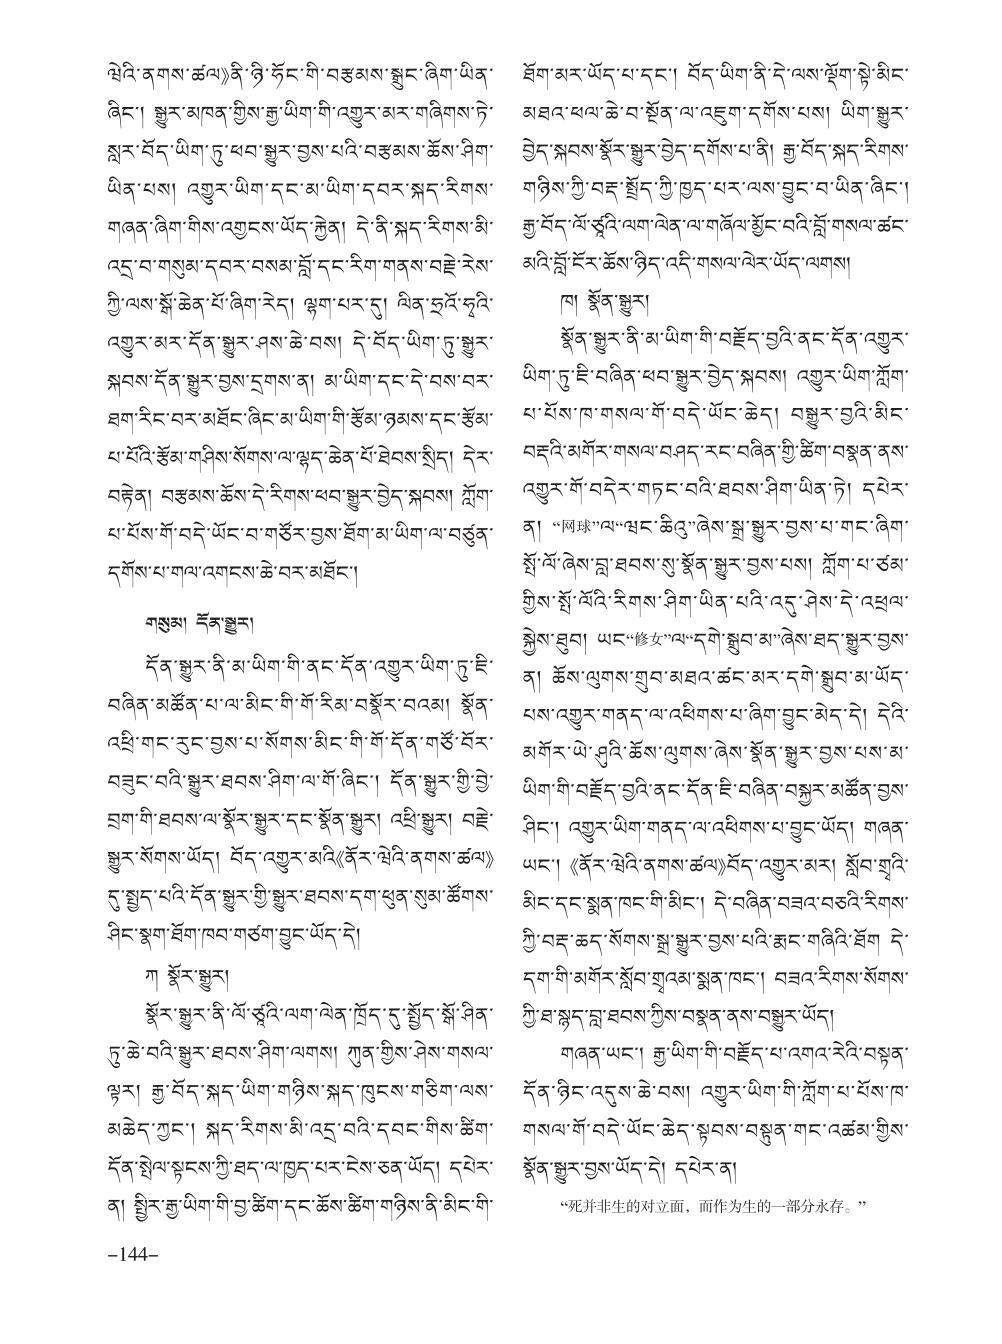 ཝེའི་ནགས་ཚལ》ནི་ཉི་ཧོང་གི་བརྩམས་སྒྲུང་ཞིག་ཡིན་
ཞིང་། སྒྱུར་མཁན་གྱིས་རྒྱ་ཡིག་གི་འགྱུར་མར་གཞིགས་ཏེ་
སླར་བོད་ཡིག་ཏུ་ཕབ་སྒྱུར་བྱས་པའི་བརྩམས་ཆོས་ཤིག་
ཡིན་པས། འགྱུར་ཡིག་དང་མ་ཡིག་དབར་སྐད་རིགས་
གཞན་ཞིག་གིས་འགྱངས་ཡོད་རྐྱེན། དེ་ནི་སྐད་རིགས་མི་
འདྲ་བ་གསུམ་དབར་བསམ་བློ་དང་རིག་གནས་བརྗེ་རེས་
ཀྱི་ལས་སྒོ་ཆེན་པོ་ཞིག་རེད། ལྷག་པར་དུ། ལིན་ཧྲའོ་ཧྭའི་
འགྱུར་མར་དོན་སྒྱུར་ཤས་ཆེ་བས། དེ་བོད་ཡིག་ཏུ་སྒྱུར་
སྐབས་དོན་སྒྱུར་བྱས་དྲགས་ན། མ་ཡིག་དང་དེ་བས་བར་
ཐག་རིང་བར་མཐོང་ཞིང་མ་ཡིག་གི་རྩོམ་ཉམས་དང་རྩོམ་
པ་པོའི་རྩོམ་གཤིས་སོགས་ལ་ལྷད་ཆེན་པོ་ཐེབས་སྲིད། དེར་
བརྟེན། བརྩམས་ཆོས་དེ་རིགས་ཕབ་སྒྱུར་བྱེད་སྐབས། ཀློག་
པ་པོས་གོ་བདེ་ཡོང་བ་གཙོར་བྱས་ཐོག་མ་ཡིག་ལ་བཙུན་
དགོས་པ་གལ་འགངས་ཆེ་བར་མཐོང་།
གསུམ། དོན་སྒྱུར།
དོན་སྒྱུར་ནི་མ་ཡིག་གི་ནང་དོན་འགྱུར་ཡིག་ཏུ་ཇི་
བཞིན་མཚོན་པ་ལ་མིང་གི་གོ་རིམ་བསྣོར་བའམ། སྣོན་
འཕྲི་གང་རུང་བྱས་པ་སོགས་མིང་གི་གོ་དོན་གཙོ་བོར་
བཟུང་བའི་སྒྱུར་ཐབས་ཤིག་ལ་གོ་ཞིང་། དོན་སྒྱུར་གྱི་བྱེ་
བྲག་གི་ཐབས་ལ་སྣོར་སྒྱུར་དང་སྣོན་སྒྱུར། འཕྲི་སྒྱུར། བརྗེ་
སྒྱུར་སོགས་ཡོད། བོད་འགྱུར་མའི《ནོར་ཝེའི་ནགས་ཚལ》
དུ་སྤྱད་པའི་དོན་སྒྱུར་གྱི་སྒྱུར་ཐབས་དག་ཕུན་སུམ་ཚོགས་
ཤིང་སྣག་ཐོག་ཁབ་གཙག་བྱུང་ཡོད་དེ།
ཀ སྣོར་སྒྱུར།
སྣོར་སྒྱུར་ནི་ལོ་ཙཱའི་ལག་ལེན་ཁྲོད་དུ་སྤྱོད་སྒོ་ཤིན་
ཏུ་ཆེ་བའི་སྒྱུར་ཐབས་ཤིག་ལགས། ཀུན་གྱིས་ཤེས་གསལ་
ལྟར། རྒྱ་བོད་སྐད་ཡིག་གཉིས་སྐད་ཁུངས་གཅིག་ལས་
མཆེད་ཀྱང་། སྐད་རིགས་མི་འདྲ་བའི་དབང་གིས་ཚིག་
དོན་སྤེལ་སྟངས་ཀྱི་ཐད་ལ་ཁྱད་པར་ངེས་ཅན་ཡོད། དཔེར་
ན། སྤྱིར་རྒྱ་ཡིག་གི་བྱ་ཚིག་དང་ཆོས་ཚིག་གཉིས་ནི་མིང་གི་
ཐོག་མར་ཡོད་པ་དང་། བོད་ཡིག་ནི་དེ་ལས་ལྡོག་སྟེ་མིང་
མཐའ་ཕལ་ཆེ་བ་སྔོན་ལ་འཇུག་དགོས་པས། ཡིག་སྒྱུར་
བྱེད་སྐབས་སྣོར་སྒྱུར་བྱེད་དགོས་པ་ནི། རྒྱ་བོད་སྐད་རིགས་
གཉིས་ཀྱི་བརྡ་སྤྲོད་ཀྱི་ཁྱད་པར་ལས་བྱུང་བ་ཡིན་ཞིང་།
རྒྱ་བོད་ལོ་ཙཱའི་ལག་ལེན་ལ་གཞོལ་མྱོང་བའི་བློ་གསལ་ཚང་
མའི་བློ་ངོར་ཆོས་ཉིད་འདི་གསལ་ལེར་ཡོད་ལགས།
ཁ། སྣོན་སྒྱུར།
སྣོན་སྒྱུར་ནི་མ་ཡིག་གི་བརྗོད་བྱའི་ནང་དོན་འགྱུར་
ཡིག་ཏུ་ཇི་བཞིན་ཕབ་སྒྱུར་བྱེད་སྐབས། འགྱུར་ཡིག་ཀློག་
པ་པོས་ཁ་གསལ་གོ་བདེ་ཡོང་ཆེད། བསྒྱུར་བྱའི་མིང་
བརྡའི་མགོར་གསལ་བཤད་རང་བཞིན་གྱི་ཚིག་བསྣན་ནས་
འགྱུར་གོ་བདེར་གཏང་བའི་ཐབས་ཤིག་ཡིན་ཏེ། དཔེར་
ན། “网球”ལ“ཝང་ཆིའུ”ཞེས་སྒྲ་སྒྱུར་བྱས་པ་གང་ཞིག་
སྤོ་ལོ་ཞེས་བླ་ཐབས་སུ་སྣོན་སྒྱུར་བྱས་པས། ཀློག་པ་ཙམ་
གྱིས་སྤོ་ལོའི་རིགས་ཤིག་ཡིན་པའི་འདུ་ཤེས་དེ་འཕྲལ་
སྐྱེས་ཐུབ། ཡང“修女”ལ“དགེ་སྒྲུབ་མ”ཞེས་ཐད་སྒྱུར་བྱས་
ན། ཆོས་ལུགས་གྲུབ་མཐའ་ཚང་མར་དགེ་སྒྲུབ་མ་ཡོད་
པས་འགྱུར་གནད་ལ་འཕིགས་པ་ཞིག་བྱུང་མེད་དེ། དེའི་
མགོར་ཡེ་ཤུའི་ཆོས་ལུགས་ཞེས་སྣོན་སྒྱུར་བྱས་པས་མ་
ཡིག་གི་བརྗོད་བྱའི་ནང་དོན་ཇི་བཞིན་བསྐྱར་མཚོན་བྱས་
ཤིང་། འགྱུར་ཡིག་གནད་ལ་འཕིགས་པ་བྱུང་ཡོད། གཞན་
ཡང་། 《ནོར་ཝེའི་ནགས་ཚལ》བོད་འགྱུར་མར། སློབ་གྲྭའི་
མིང་དང་སྨན་ཁང་གི་མིང་། དེ་བཞིན་བཟའ་བཅའི་རིགས་
ཀྱི་བརྡ་ཆད་སོགས་སྒྲ་སྒྱུར་བྱས་པའི་རྨང་གཞིའི་ཐོག དེ་
དག་གི་མགོར་སློབ་གྲྭའམ་སྨན་ཁང་། བཟའ་རིགས་སོགས་
ཀྱི་ཐ་སྙད་བླ་ཐབས་ཀྱིས་བསྣན་ནས་བསྒྱུར་ཡོད།
གཞན་ཡང་། རྒྱ་ཡིག་གི་བརྗོད་པ་འགའ་རེའི་བསྟན་
དོན་ཉིང་འདུས་ཆེ་བས། འགྱུར་ཡིག་གི་ཀློག་པ་པོས་ཁ་
གསལ་གོ་བདེ་ཡོང་ཆེད་སྟབས་བསྟུན་གང་འཚམ་གྱིས་
སྣོན་སྒྱུར་བྱས་ཡོད་དེ། དཔེར་ན།
“死并非生的对立面，而作为生的一部分永存。”
–144–